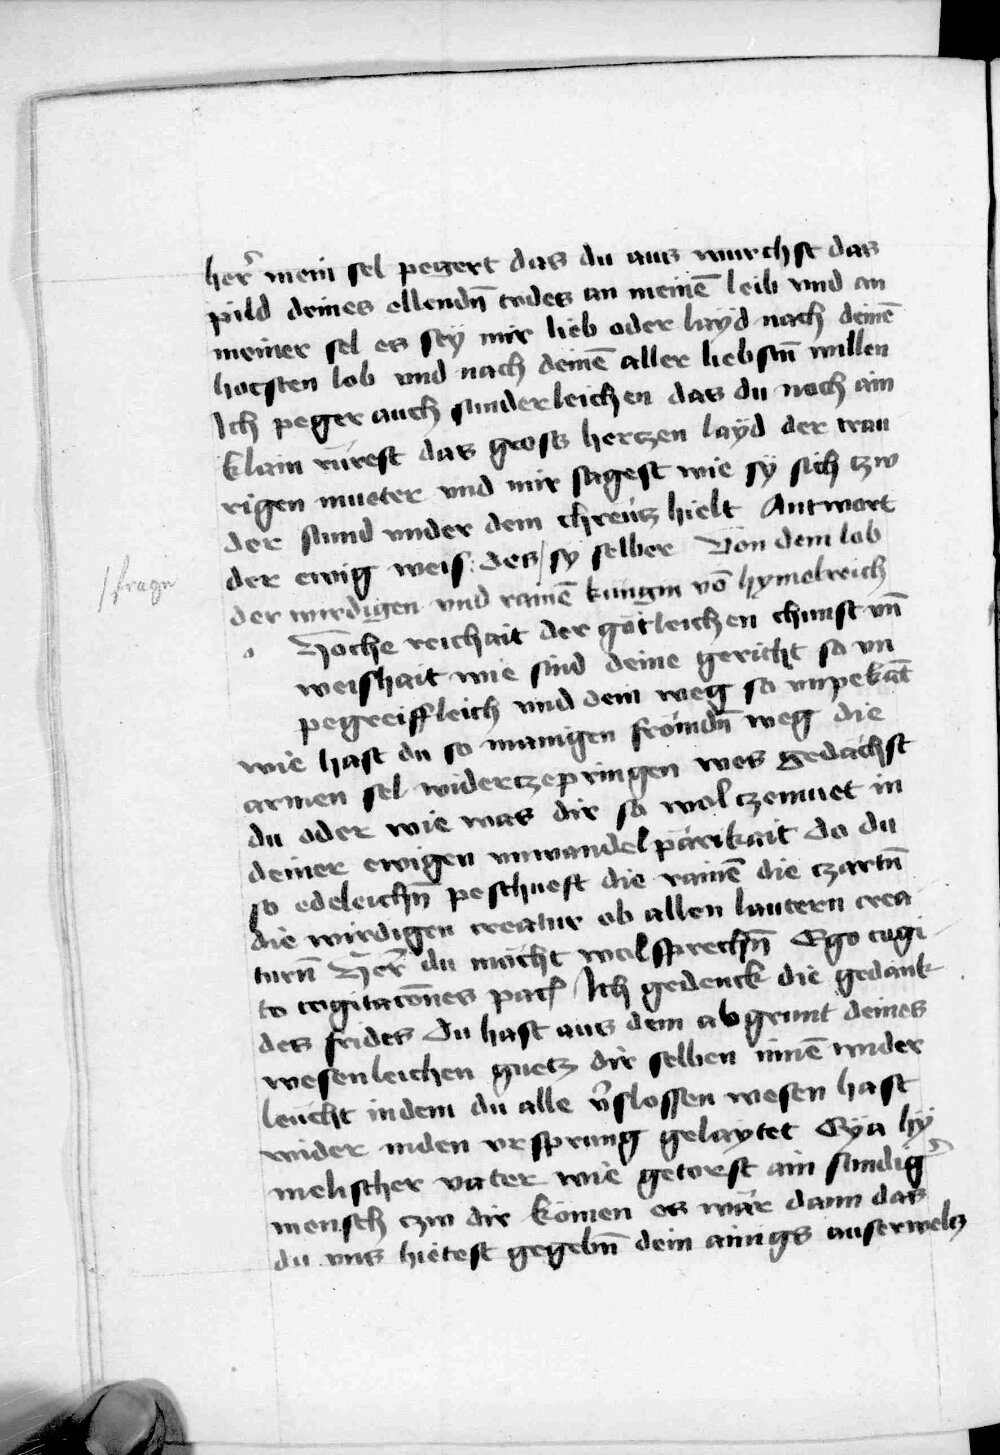 her͛ mein sel pegert das du aus wurchst das
pild deines ellendn̄ todes an meinē leib vnd an
meiner sel es seÿ mir lieb oder laÿd nach deinē
hochsten lob vnd nach deinē aller liebstn̄ willen
Ich peger auch sunderleichen das du noch ain
klain rürest das gross hertzen laÿd der trau
rigen mueter vnd mir sagest wie sÿ sich tzw
der stund vnder dem chreütz hielt Antwort
der ewig weis: des / sy selber Von dem lob
/ fragn
der wirdigen vnd rainē kungin vō hymelreich
o Hoche reichait der gotleichen chunst vn̄
weishait wie sind deine gericht so vn
pegreiffleich vnd dein weg so vnpekāt
wie hast du so manigen frömdn̄ weg die
armen sel widertzepringen wes gedächst
du oder wie was dir so wol tzemuet in
deiner ewigen vnwandelpärikait do du
so edeleichn̄ peschueft die rainē die tzartn̄
die wirdigen creatur ob allen lautern crea
turn̄ Her͛ du mächt wol sprechn̄ Ego cogi
to cogitacōnes pacꝭ Ich gedenck die gedänk
des frides Du hast aus dem abgrunt deines
wesenleichen guetz dir selben innē wider
leucht in dem du alle v̄slossen wesen hast
wider in den vrsprung gelaytet Eÿa hÿ
melischer vater wie getorst ain sundig͛
mensch tzw dir kömen es wär dann das
du vns hietest gegebn̄ dein ainigs auserweltz